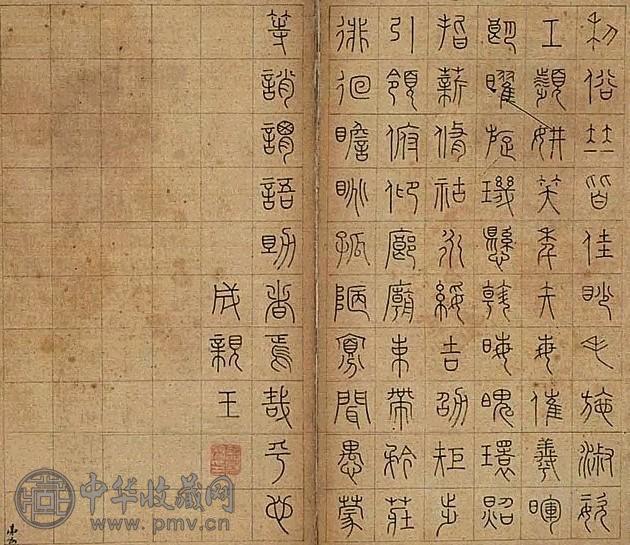 利俗竝皆佳妙毛施淑姿
工顰妍笑年矢每催羲暉
朗曜旋璣懸斡晦魄環照
指薪脩祜永綏吉劭矩步
引領俯仰廊廟束帶矜莊
徘徊瞻眺孤陋寡聞愚蒙
等誚謂語助者焉哉乎也
成親王
中华收藏网
www.pmv.cn